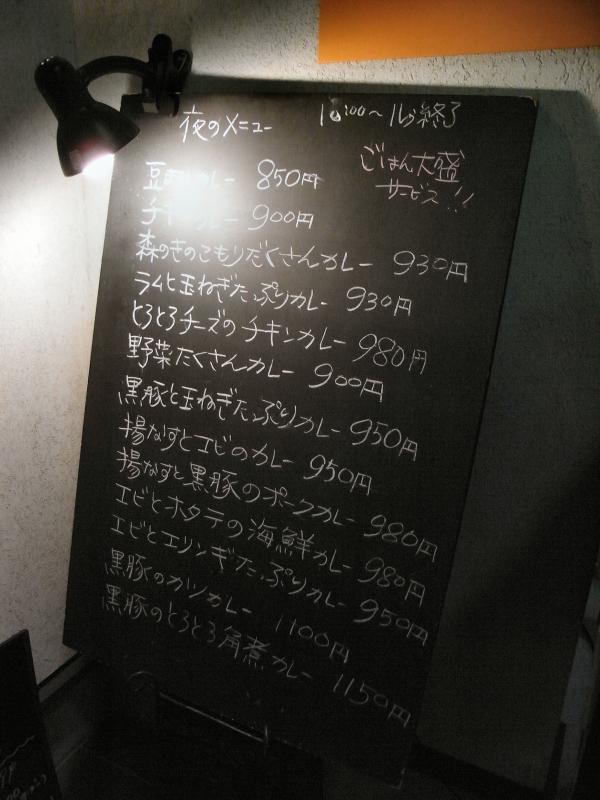 夜のメニュー
ごはん大盛
サービス!!
カレー 850円
チキンカレー 900円
森のきのこもりだくさんカレー 930円
ラムと玉ねぎたっぷりカレー 930円
とろとろチーズのチキンカレー 980円
野菜たくさんカレー 900円
黒豚と玉ねぎたっぷりカレー 950円
揚なすとエビのカレー 950円
揚なすと黒豚のポークカレー 980円
エビとホタテの海鮮カレー 980円
エビとエリンギたっぷりカレー 950円
黒豚のカツカレー 1100円
黒豚のとろとろ角煮カレー 1150円